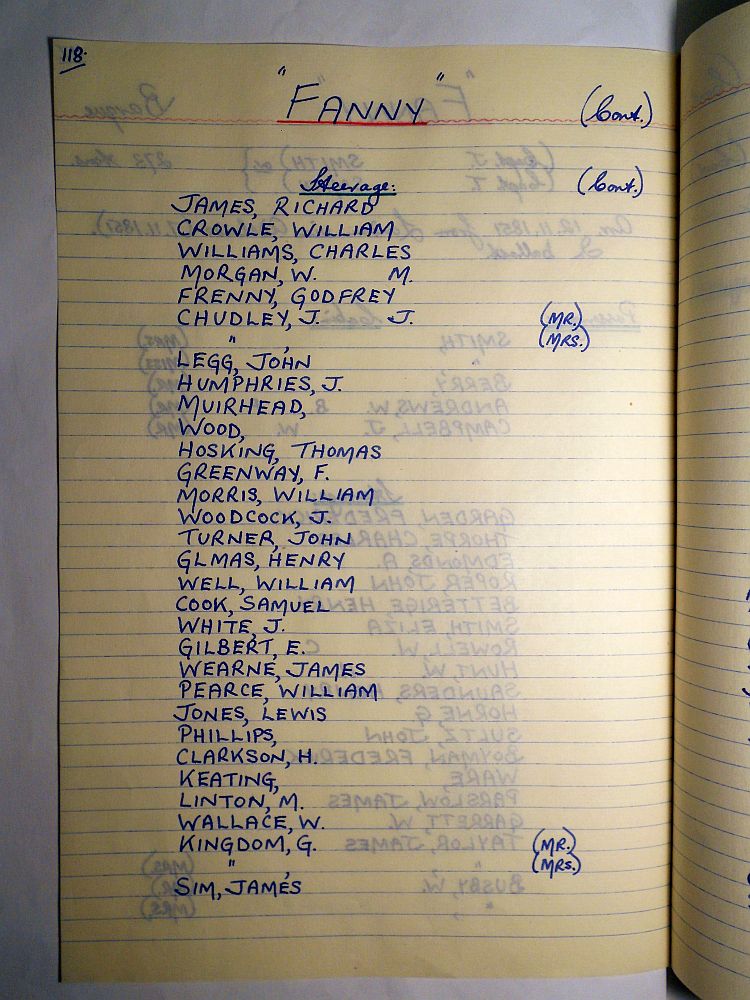 118.
"FANNY" (Cont.)
Steerage: (Cont.)
JAMES, RICHARD
CROWLE, WILLIAM
WILLIAMS, CHARLES
MORGAN, W. M.
FRENNY, GODFREY
CHUDLEY, J. J. (MR.)
" , (MRS.)
LEGG, JOHN
HUMPHRIES, J.
MUIRHEAD,
WOOD,
HOSKING, THOMAS
GREENWAY, F.
MORRIS, WILLIAM
WOODCOCK, J.
TURNER, JOHN
GLMAS, HENRY
WELL, WILLIAM
COOK, SAMUEL
WHITE, J.
GILBERT, E.
WEARNE, JAMES
PEARCE, WILLIAM
JONES, LEWIS
PHILLIPS,
CLARKSON, H.
KEATING,
LINTON, M.
WALLACE, W.
KINGDOM, G. (MR.)
" , (MRS.)
SIM, JAMES